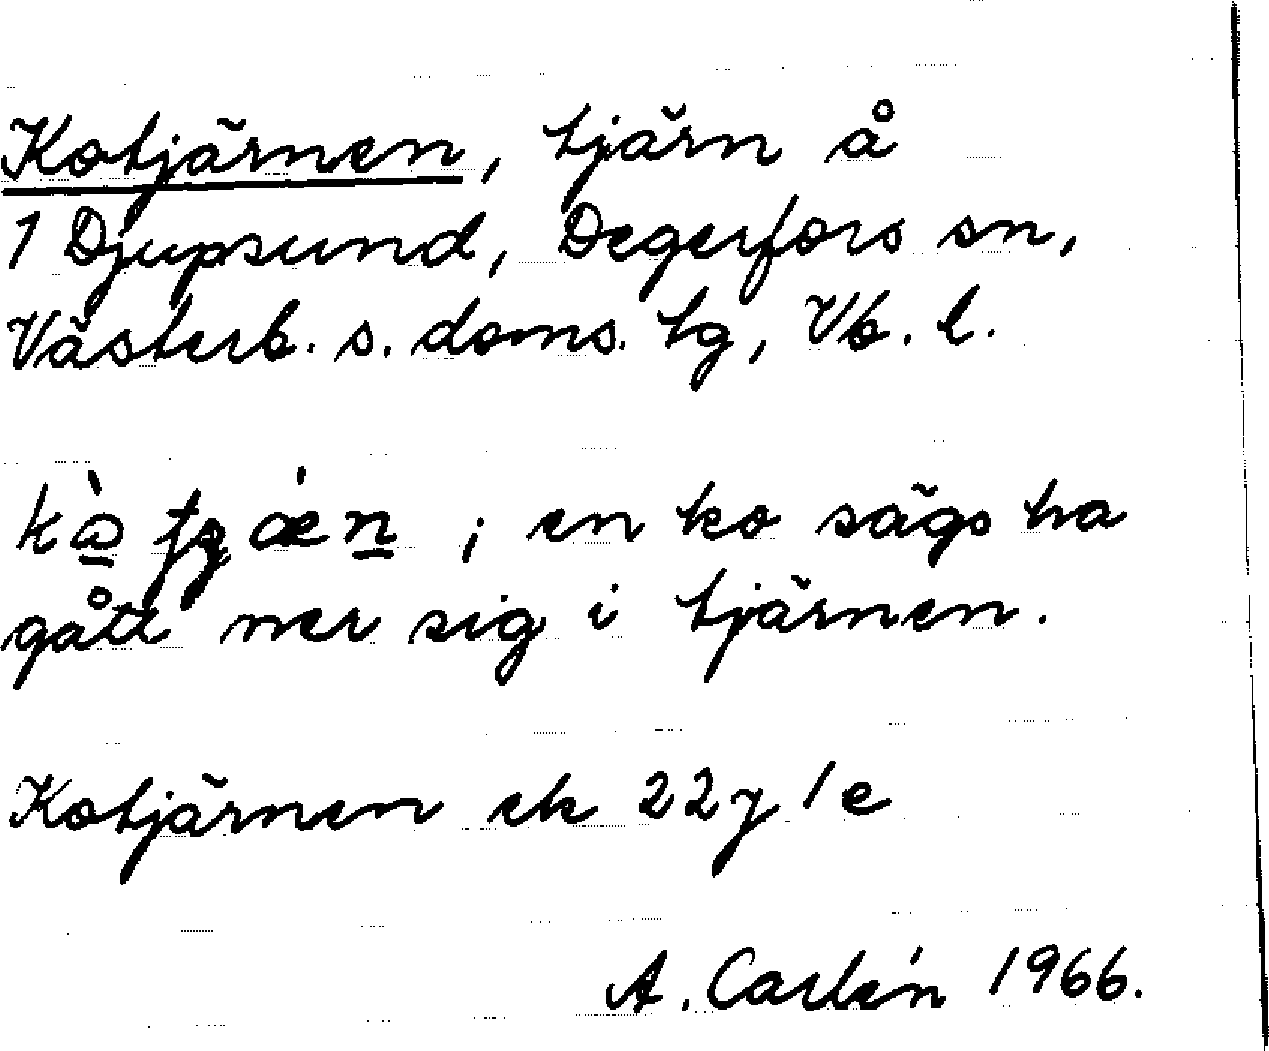 Kotjärnen, tjärn å
1 Djupsund, Degerfors sn,
Västerb. s. doms. tg, Vb. l.
; en ko sägs ha
gått ner sig i tjärnen.
Kotjärnen ek 22 j 1 e
A. Carlén 1966.